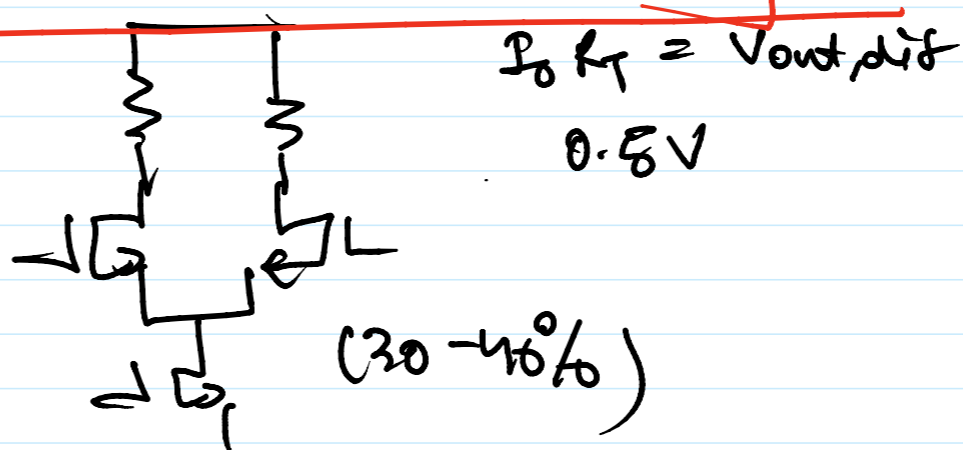 I₀ R_T = Vout,dif
0.5 V
(30-40%)